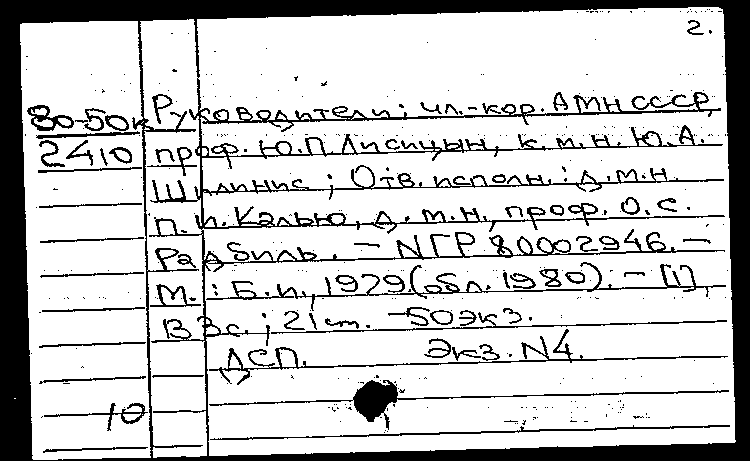 2.
80-50к Руководители: чл.-кор. АМН СССР,
2410 проф. Ю.П. Лисицын, к.м.н. Ю.А.
Шилинис; Отв. исполн.: д.м.н.
П.И. Калью, д.м.н., проф. О.С.
Радбиль. – NГР 80002946. –
М.: Б.и., 1979 (обл. 1980). – [1],
33с.; 21 см. – 50 экз.
ДСП. Экз. N4.
10